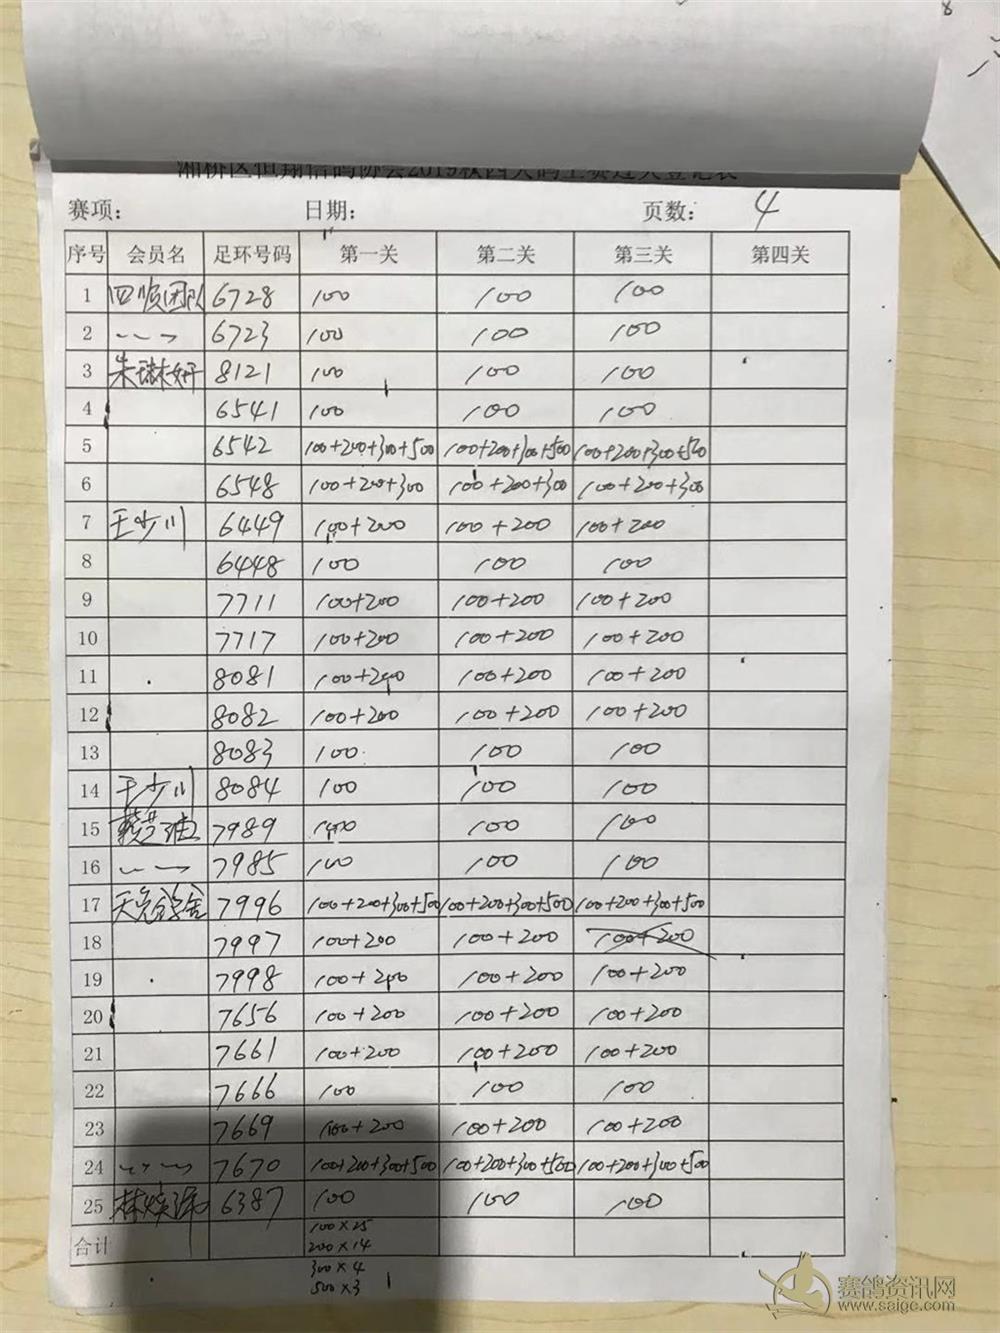 湘桥区恒翔信鸽协会2019秋四关鸽王赛过关登记表
赛项： 日期： 页数： 4
序号 会员名 足环号码 第一关 第二关 第三关 第四关
1 四顺团队 6728 100 100 100
2 〃 6723 100 100 100
3 朱琳妍 8121 100 100 100
4 6541 100 100 100
5 6542 100+200+300+500 100+200+300+500 100+200+300+500
6 6548 100+200+300 100+200+300 100+200+300
7 王少川 6449 100+200 100+200 100+200
8 6448 100 100 100
9 7711 100+200 100+200 100+200
10 7717 100+200 100+200 100+200
11 8081 100+200 100+200 100+200
12 8082 100+200 100+200 100+200
13 8083 100 100 100
14 王少川 8084 100 100 100
15 7989 100 100 100
16 〃 7985 100 100 100
17 7996 100+200+300+500 100+200+300+500 100+200+300+500
18 7997 100+200 100+200 100+200
19 7998 100+200 100+200 100+200
20 7656 100+200 100+200 100+200
21 7661 100+200 100+200 100+200
22 7666 100 100 100
23 7669 100+200 100+200 100+200
24 〃 7670 100+200+300+500 100+200+300+500 100+200+300+500
25 6387 100 100 100
合计 100×25
200×14
300×4
500×3
赛鸽资讯网
www.saige.com